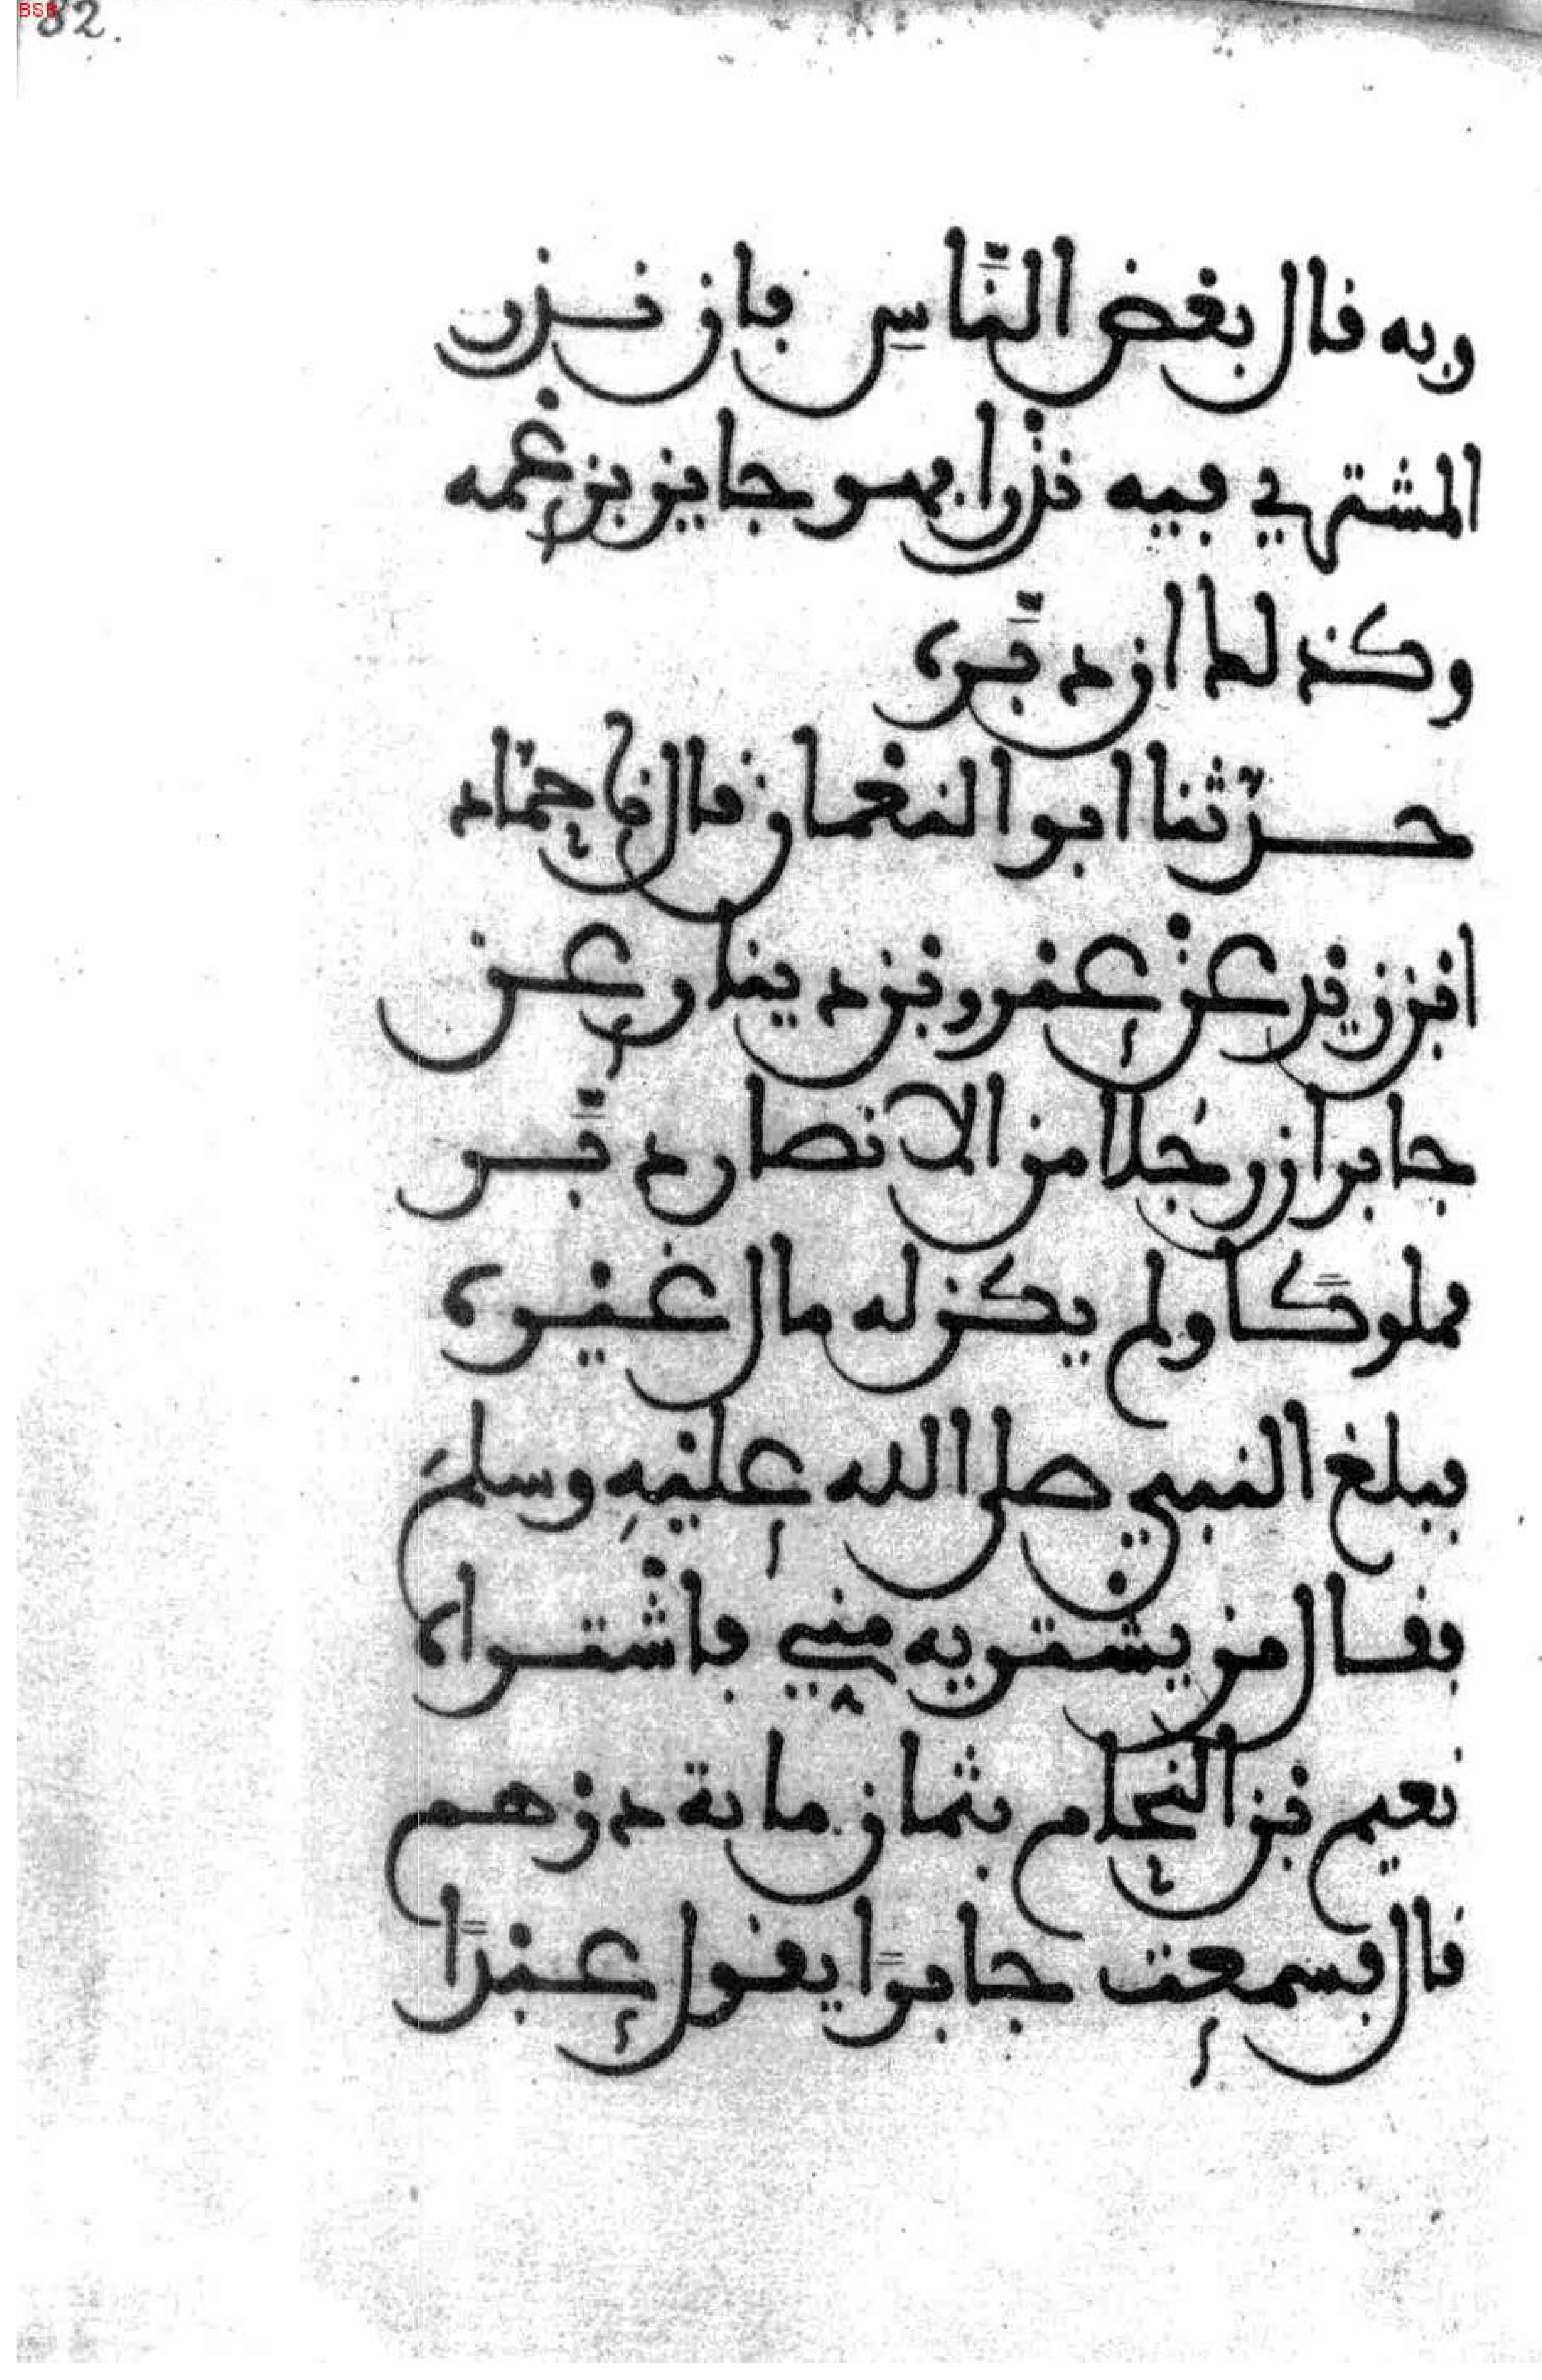 82.
وبه قال بعض النَّاسِ فان نذر
المشتري فيه نذرا فهو جايز بزعمه
وكذلك ان دبَّره
حدّثنا ابو النعمان قال نا حمّاد
ابن زيد عن عمرو بن دينار عن
جابر ان رجُلا من الانصار دبَّر
مملوكًا ولم يكن له مال غيره
فبلغ النبي صلى الله عليهِ وسلمَ
فقال من يشتريه مني فاشتراه
نعيم بن النحام بثمان ماية درهم
قال فسمعت جابرًا يقول عبدًا